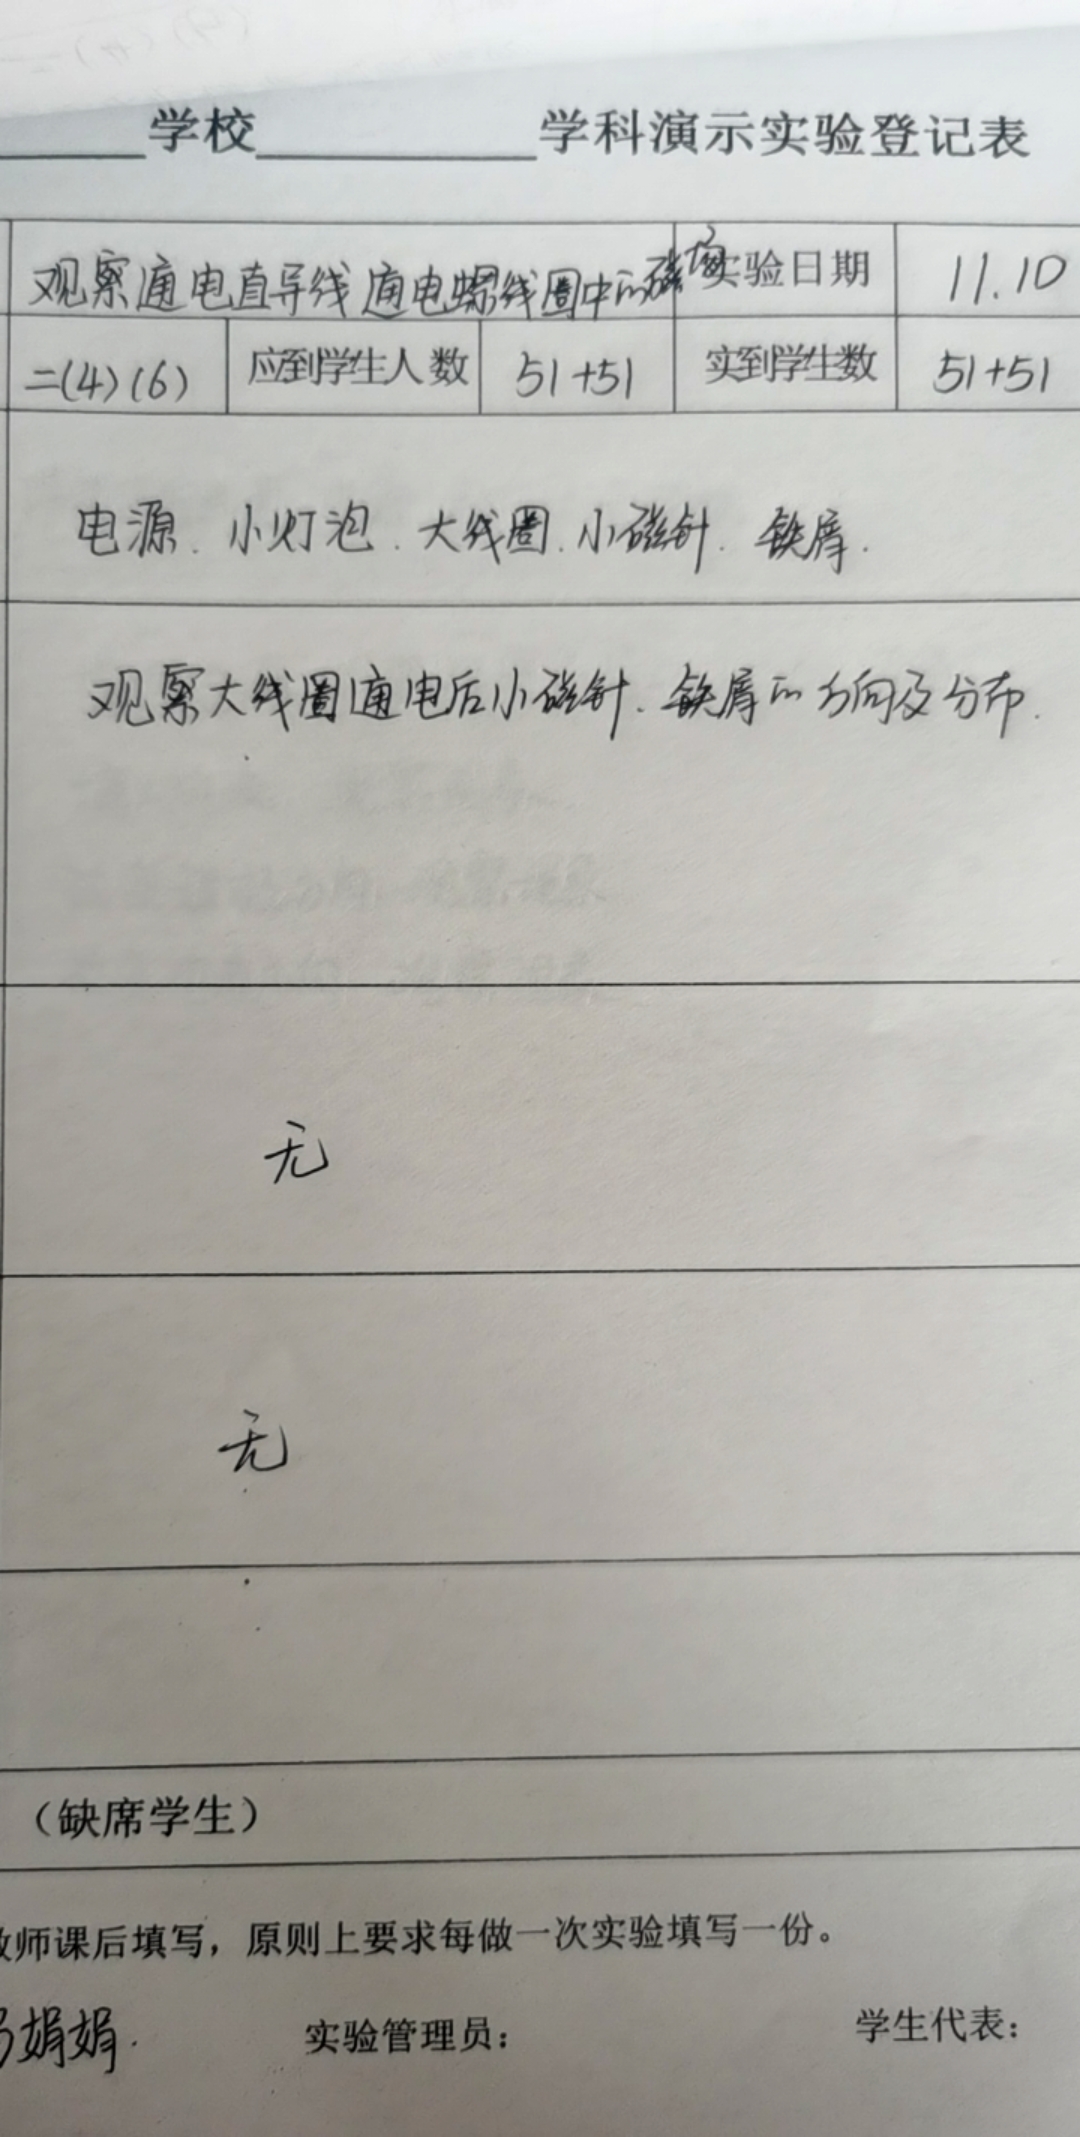 学校 学科演示实验登记表
观察通电直导线通电螺线圈中的磁场 实验日期 11.10
二(4)(6) 应到学生人数 51+51 实到学生数 51+51
电源、小灯泡、大线圈、小磁针、铁屑.
观察大线圈通电后小磁针、铁屑的方向及分布.
无
无
（缺席学生）
教师课后填写，原则上要求每做一次实验填写一份。
娟娟. 实验管理员： 学生代表：